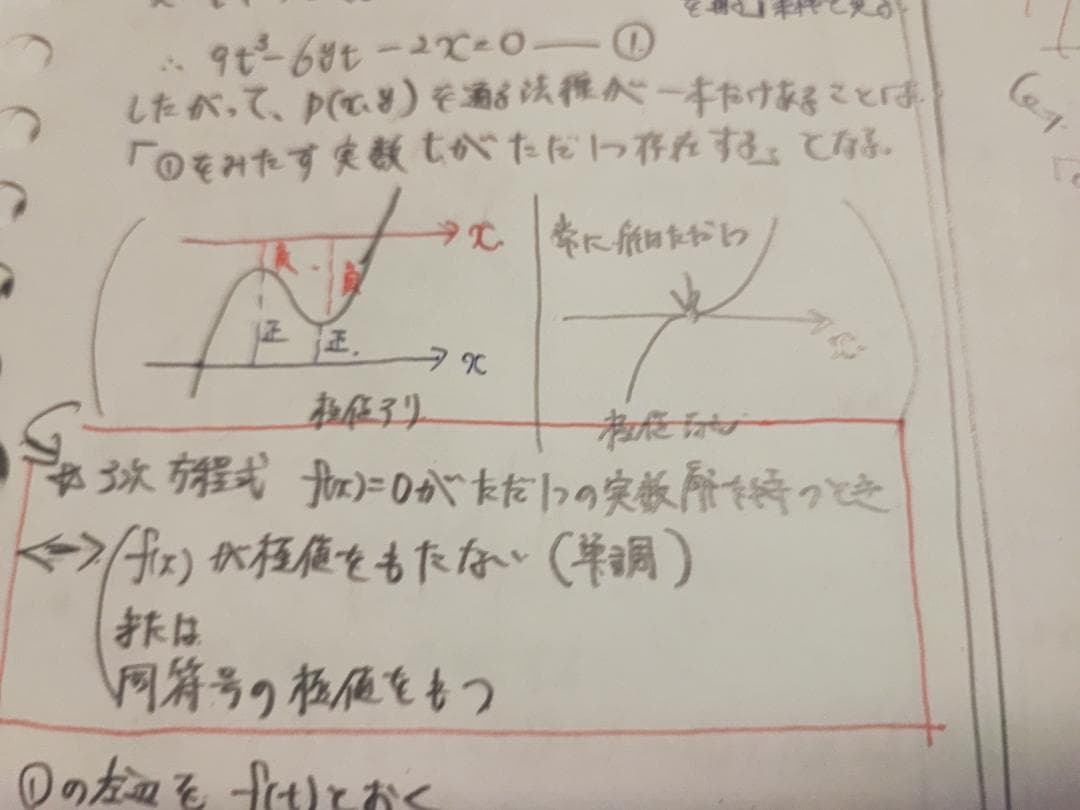 ∴ 9t³-6yt-2x=0 ― ①
したがって、P(x,y)を通る法線が一本だけあることは
「①をみたす実数tがただ1つ存在する」となる。
x
負 負
正 正
x
極値アリ
常に解はただ1つ
x
極値なし
* 3次方程式 f(x)=0がただ1つの実数解を持つとき
⇔ f(x)が極値をもたない(単調)
または
同符号の極値をもつ
①の左辺をf(t)とおく